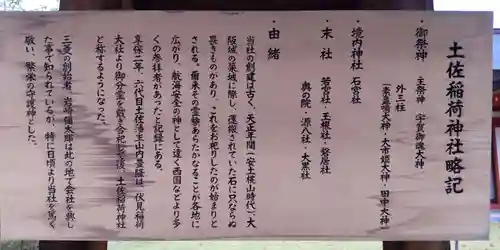 土佐稲荷神社略記
・御祭神　主祭神　宇賀御魂大神
外三柱
（素盞嗚大神・大市姫大神・田中大神）
・境内神社　石宮社
・末社　若宮社・玉根社・磐居社
奥の院・源八社・大黒社
・由緒
当社の創建は古く、天正年間（安土桃山時代）、大
阪城の築城に際し、運搬されていた石に只ならぬ
異きものがあり、これをお祀りしたのが始まりと
される。爾来その霊験あらたかなることが各地に
広がり、航海安全の神として遠く西国などより多
くの参拝者があったと記録にある。
享保二年、六代目土佐藩主山内豊隆は、伏見稲荷
大社より御分霊を戴き合祀して後、土佐稲荷神社
と称するようになった。
三菱の創始者、岩崎彌太郎は此の地で会社を興し
た事で知られているが、特に日頃より当社を篤く
敬い、繁栄の守護神とした。